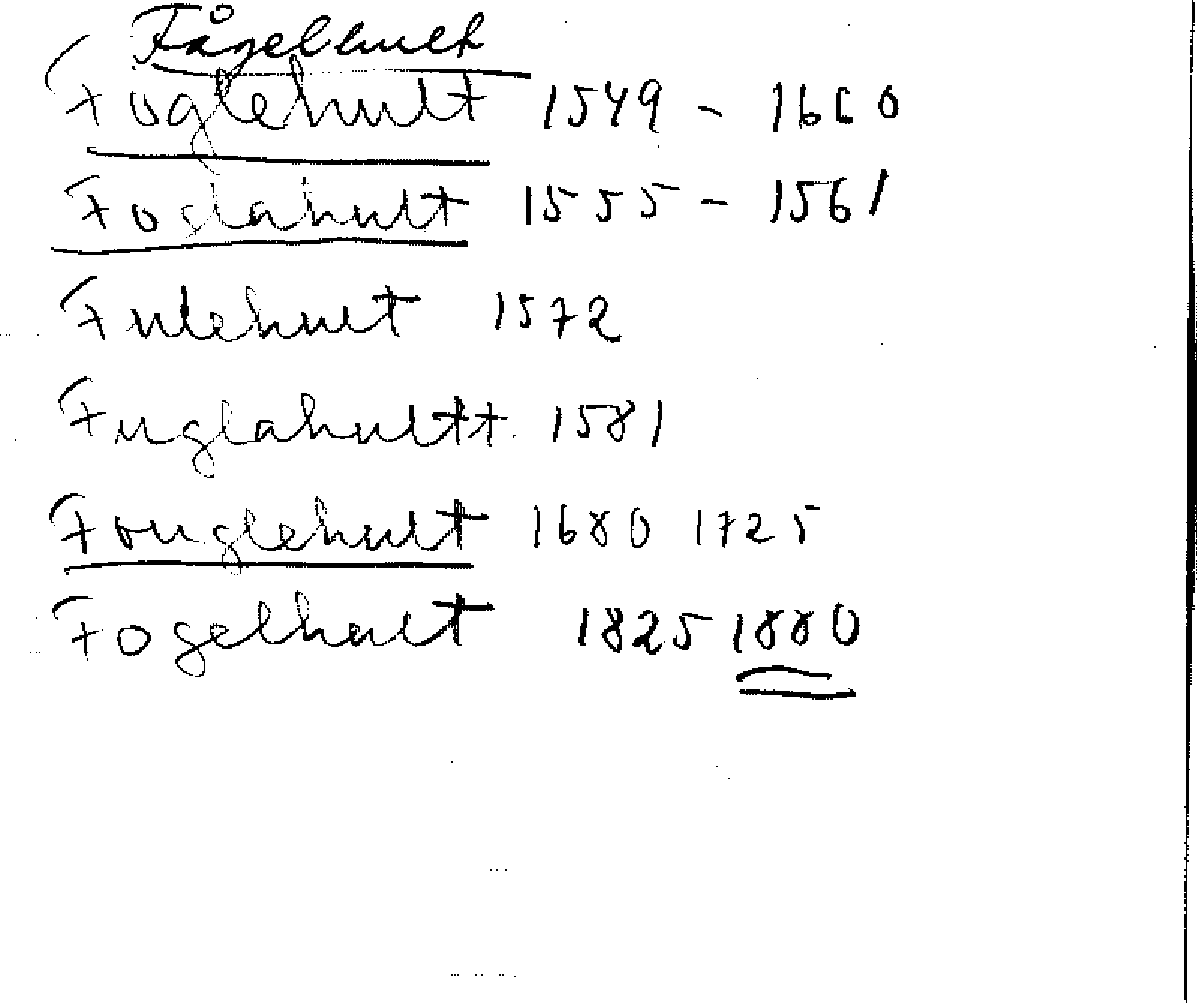 Fågelhult
Foglehult 1549 - 1660
Foglahult 1555 - 1561
Fulehult 1572
Fuglahultt 1581
Fouglehult 1680 1725
Fogelhult 1825 1880